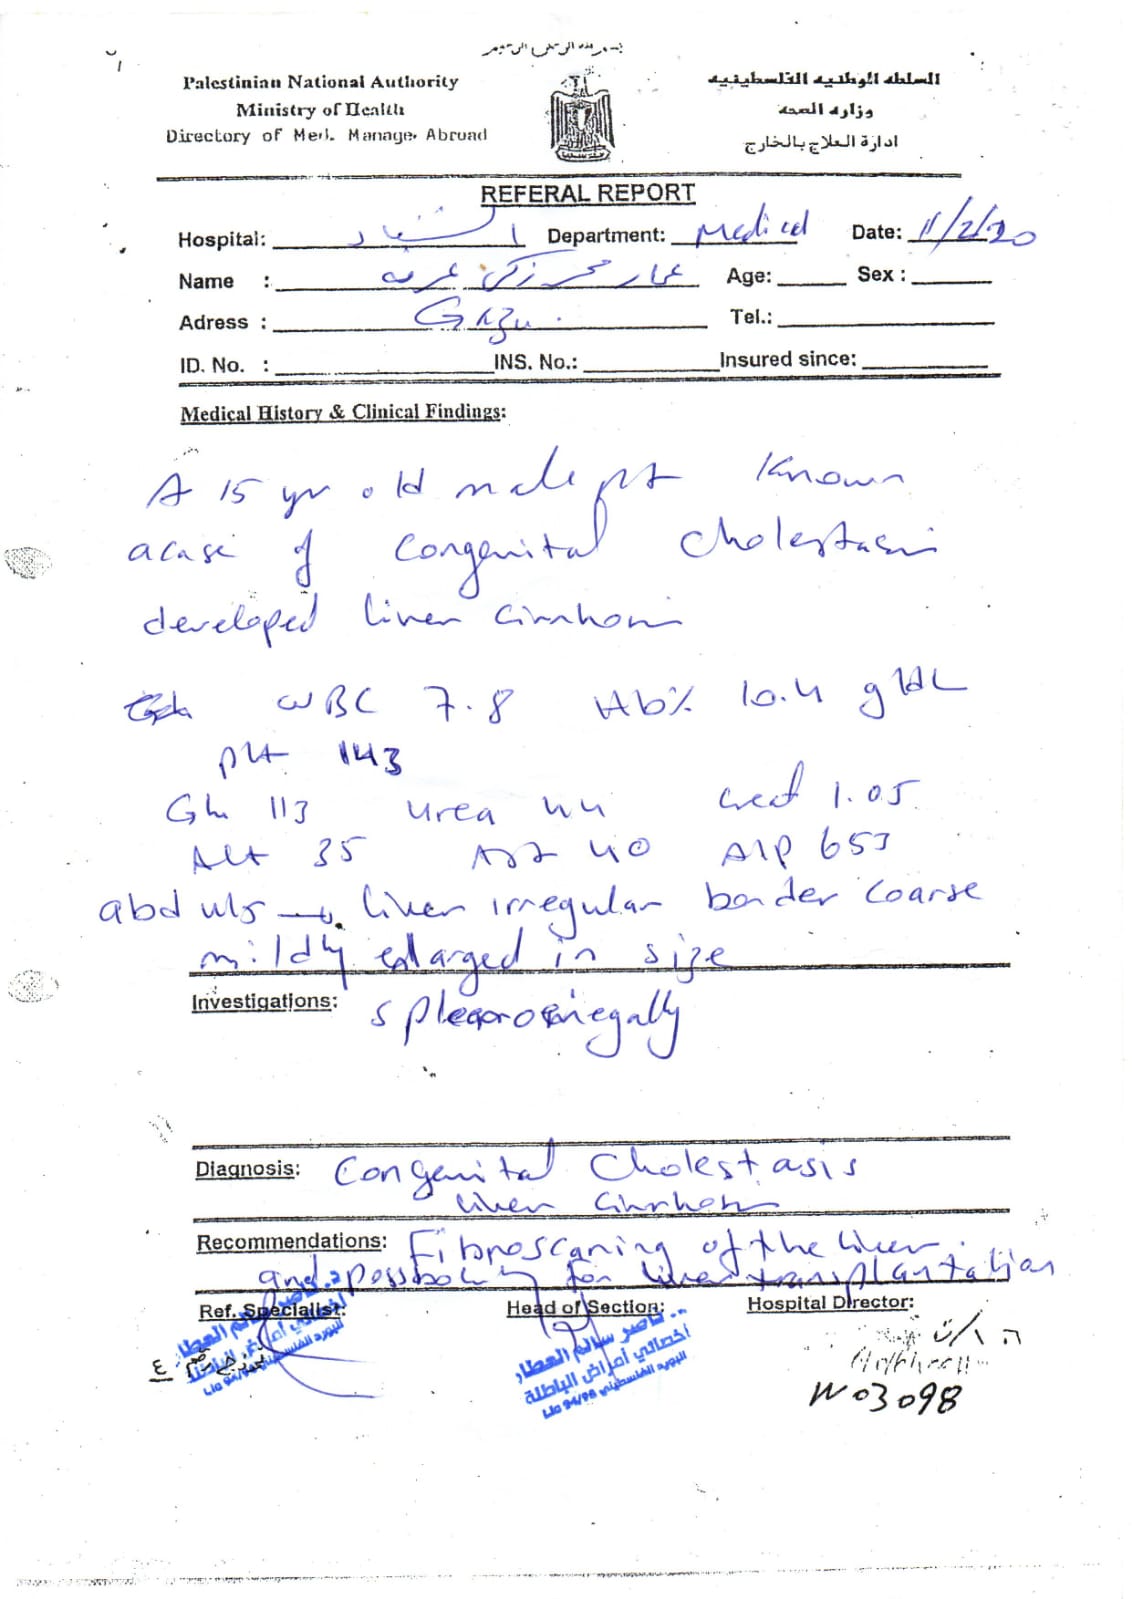 Palestinian National Authority
Ministry of Health
Directory of Med. Manage. Abroad
السلطه الوطنيه الفلسطينيه
وزاره الصحه
ادارة العلاج بالخارج
REFERAL REPORT
Hospital: الشفاء Department: Medical Date: 11/2/20
Name : عمار محمد زكي Age: Sex :
Adress : Gaza. Tel.:
ID. No. : INS. No.: Insured since:
Medical History & Clinical Findings:
A 15 yr old male pt Known
a case of Congenital Cholestasis
developed liver cirrhosis
WBC 7.8 Hb% 10.4 g/dL
plt 143
Glu 113 urea 44 creat 1.05
Alt 35 AST 40 Alp 653
abd u/s → liver irregular border coarse
mildly enlarged in size
Investigations: splenomegally
Diagnosis: Congenital Cholestasis
liver cirrhosis
Recommendations: Fibroscaning of the liver.
and possibility for liver transplantation
Ref. Specialist: Head of Section: Hospital Director:
د. ناصر سالم العطار
أخصائي أمراض الباطنة
د. ناصر سالم العطار
أخصائي أمراض الباطنة
البورد الفلسطيني
W03098